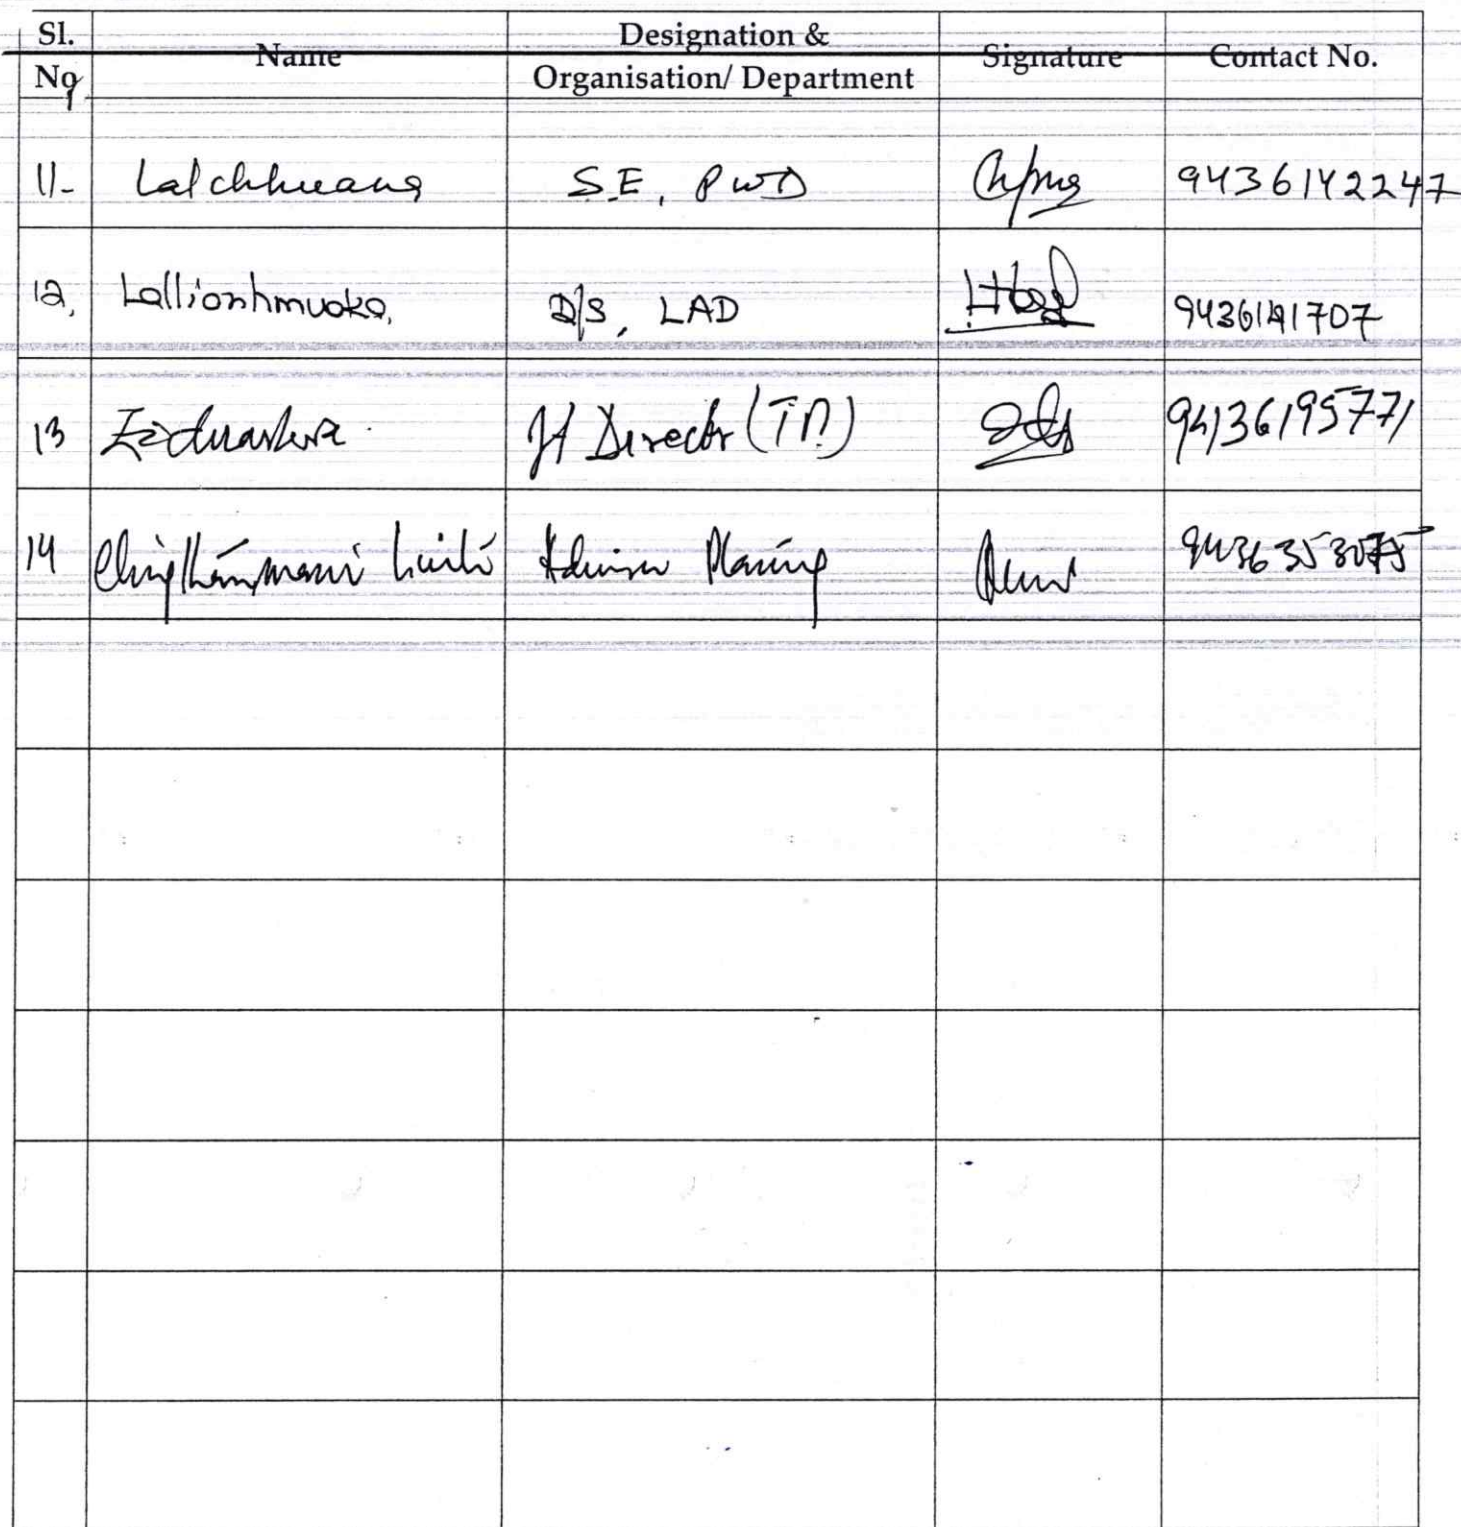 Sl. No. Name Designation & Organisation/ Department Signature Contact No.
11- Lalchhuana S.E, PWD 9436142247
12, Lallianhmuaka, D/S, LAD 9436141707
13 Jt Director (TP) 9436195771
14 Adviser Planning